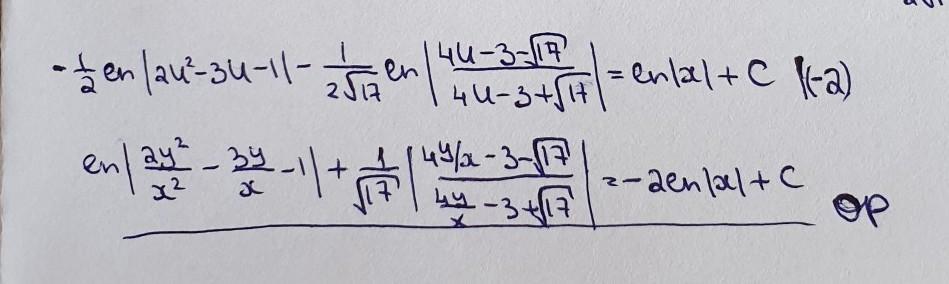 -½ ln|2u²-3u-1| - 1/(2√17) ln|(4u-3-√17)/(4u-3+√17)| = ln|x| + C |(-2)
ln|2y²/x² - 3y/x - 1| + 1/√17 |(4y/x-3-√17)/(4y/x-3+√17)| = -2ln|x| + C
OP